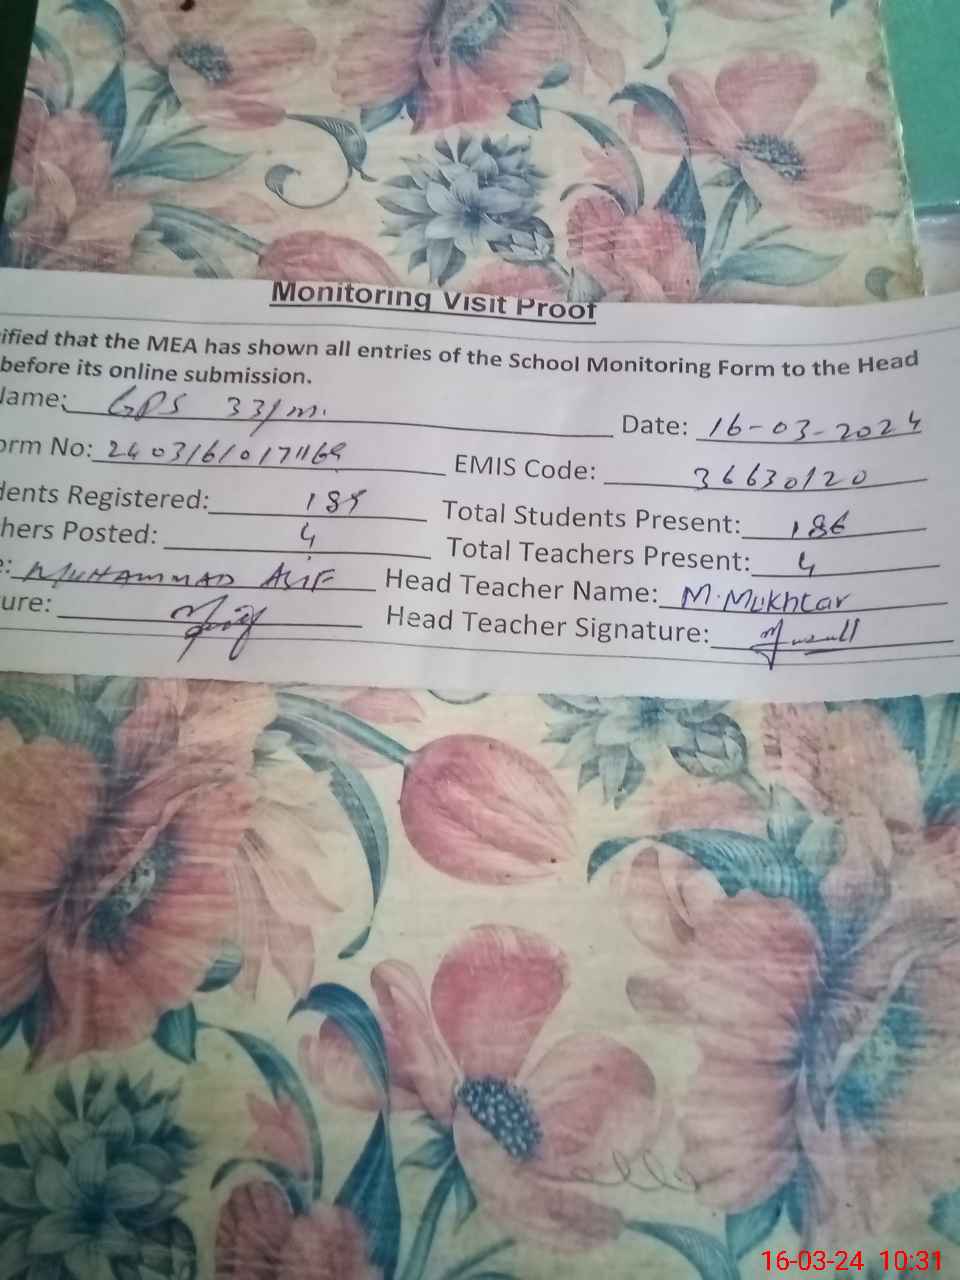 Monitoring Visit Proof
ified that the MEA has shown all entries of the School Monitoring Form to the Head
before its online submission.
Name: GPS 33/m.
Date: 16-03-2024
orm No:
EMIS Code: 36630120
dents Registered:
Total Students Present: 186
hers Posted: 4
Total Teachers Present: 4
e: MUHAMMAD
Head Teacher Name: M. Mukhtar
ure:
Head Teacher Signature:
16-03-24 10:31